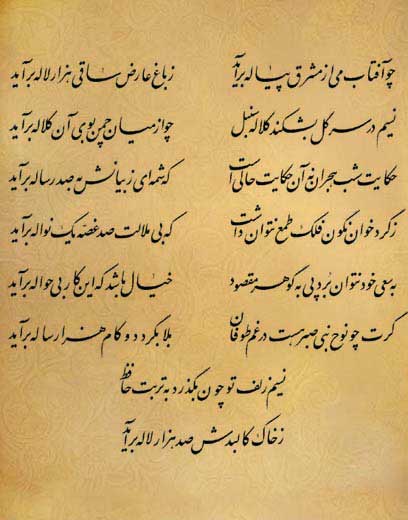 چو آفتاب می از مشرق پیاله برآید ز باغ عارض ساقی هزار لاله برآید
نسیم در سر گل بشکند کلاله سنبل چو از میان چمن بوی آن کلاله برآید
حکایت شب هجران نه آن حکایت حالی است که شمه‌ای ز بیانش به صد رساله برآید
ز گرد خوان نگون فلک طمع نتوان داشت که بی ملالت صد غصه یک نواله برآید
به سعی خود نتوان برد پی به گوهر مقصود خیال باشد که این کار بی حواله برآید
گرت چو نوح نبی صبر هست در غم طوفان بلا بگردد و کام هزار ساله برآید
نسیم زلف تو چون بگذرد به تربت حافظ
ز خاک کالبدش صد هزار لاله برآید